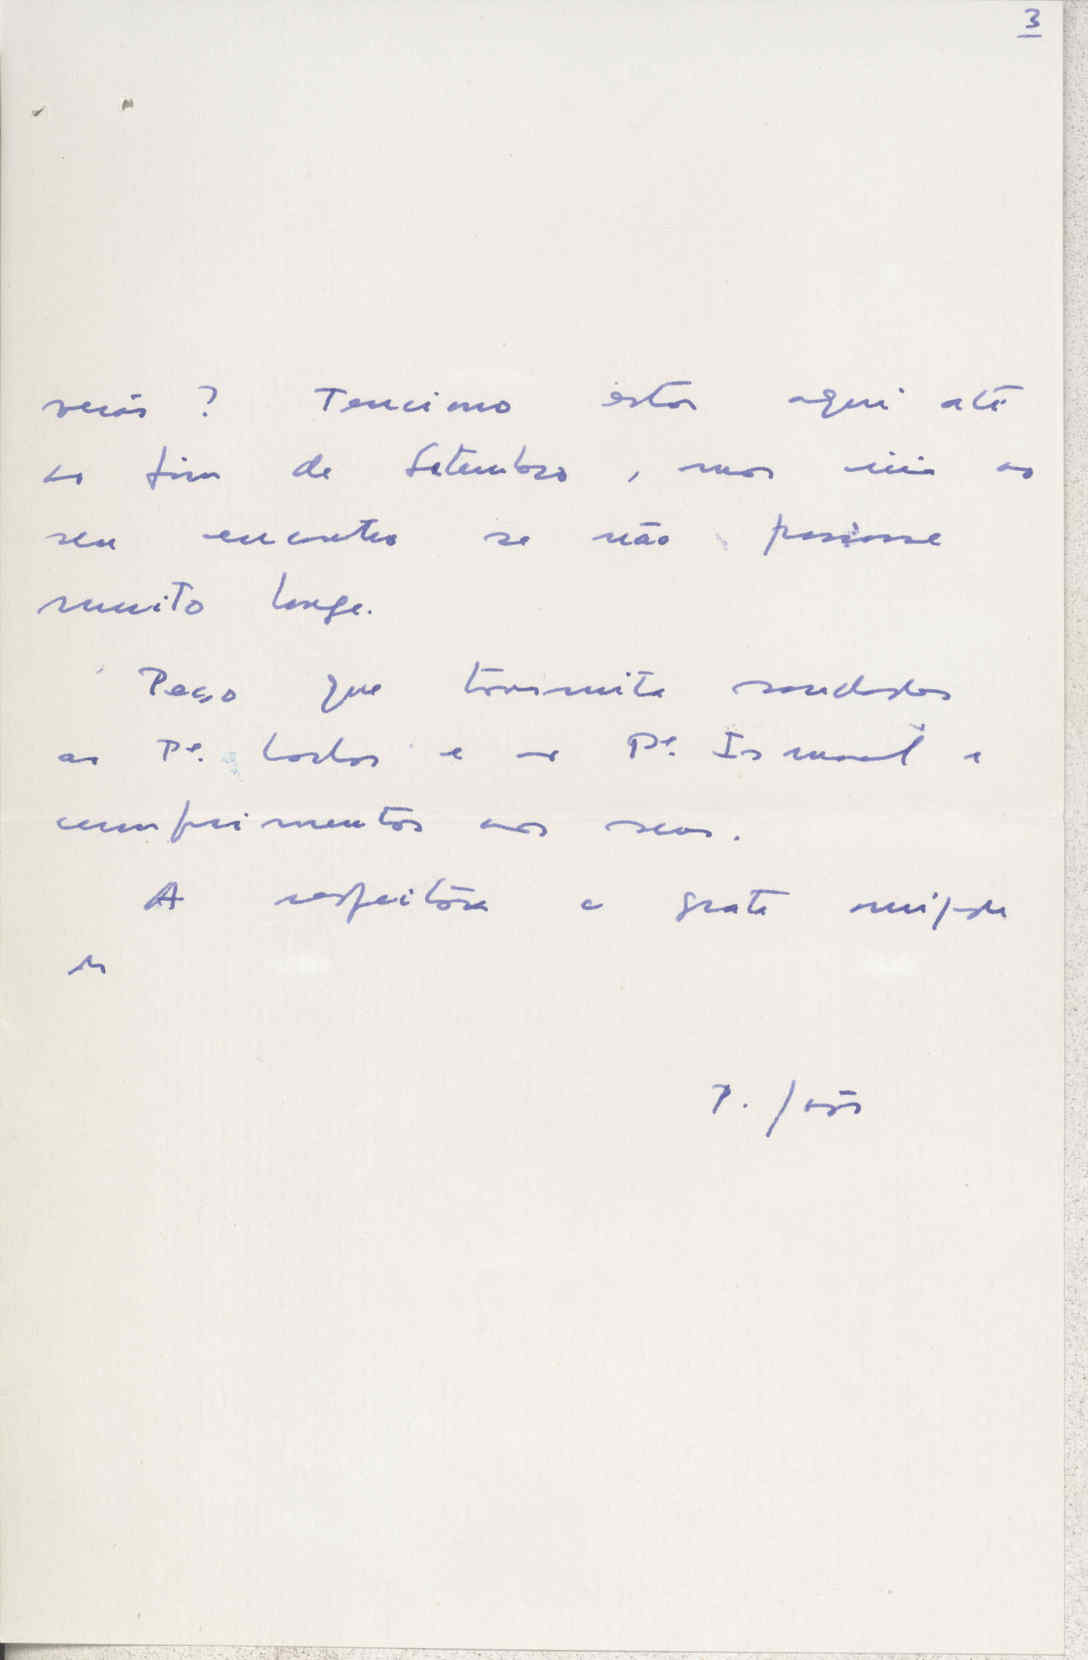 3
verão? Tenciono estar aqui até
ao fim de Setembro, mas iria ao
seu encontro se não passasse
muito longe.
Peço que transmita saudades
ao Pe. Carlos e ao Pe. Ismael e
cumprimentos aos seus.
A respeitosa e grata amizade
do
P. João